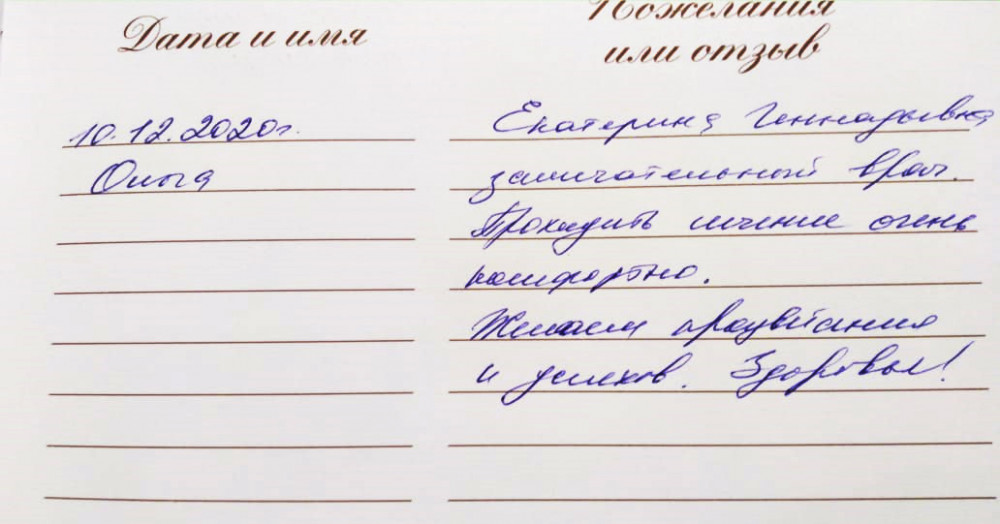 Дата и имя
Пожелания
или отзыв
10.12.2020г.
Ольга
Екатерина Геннадьевна
замечательный врач.
Проходить лечение очень
комфортно.
Желаем процветания
и успехов. Здоровья!